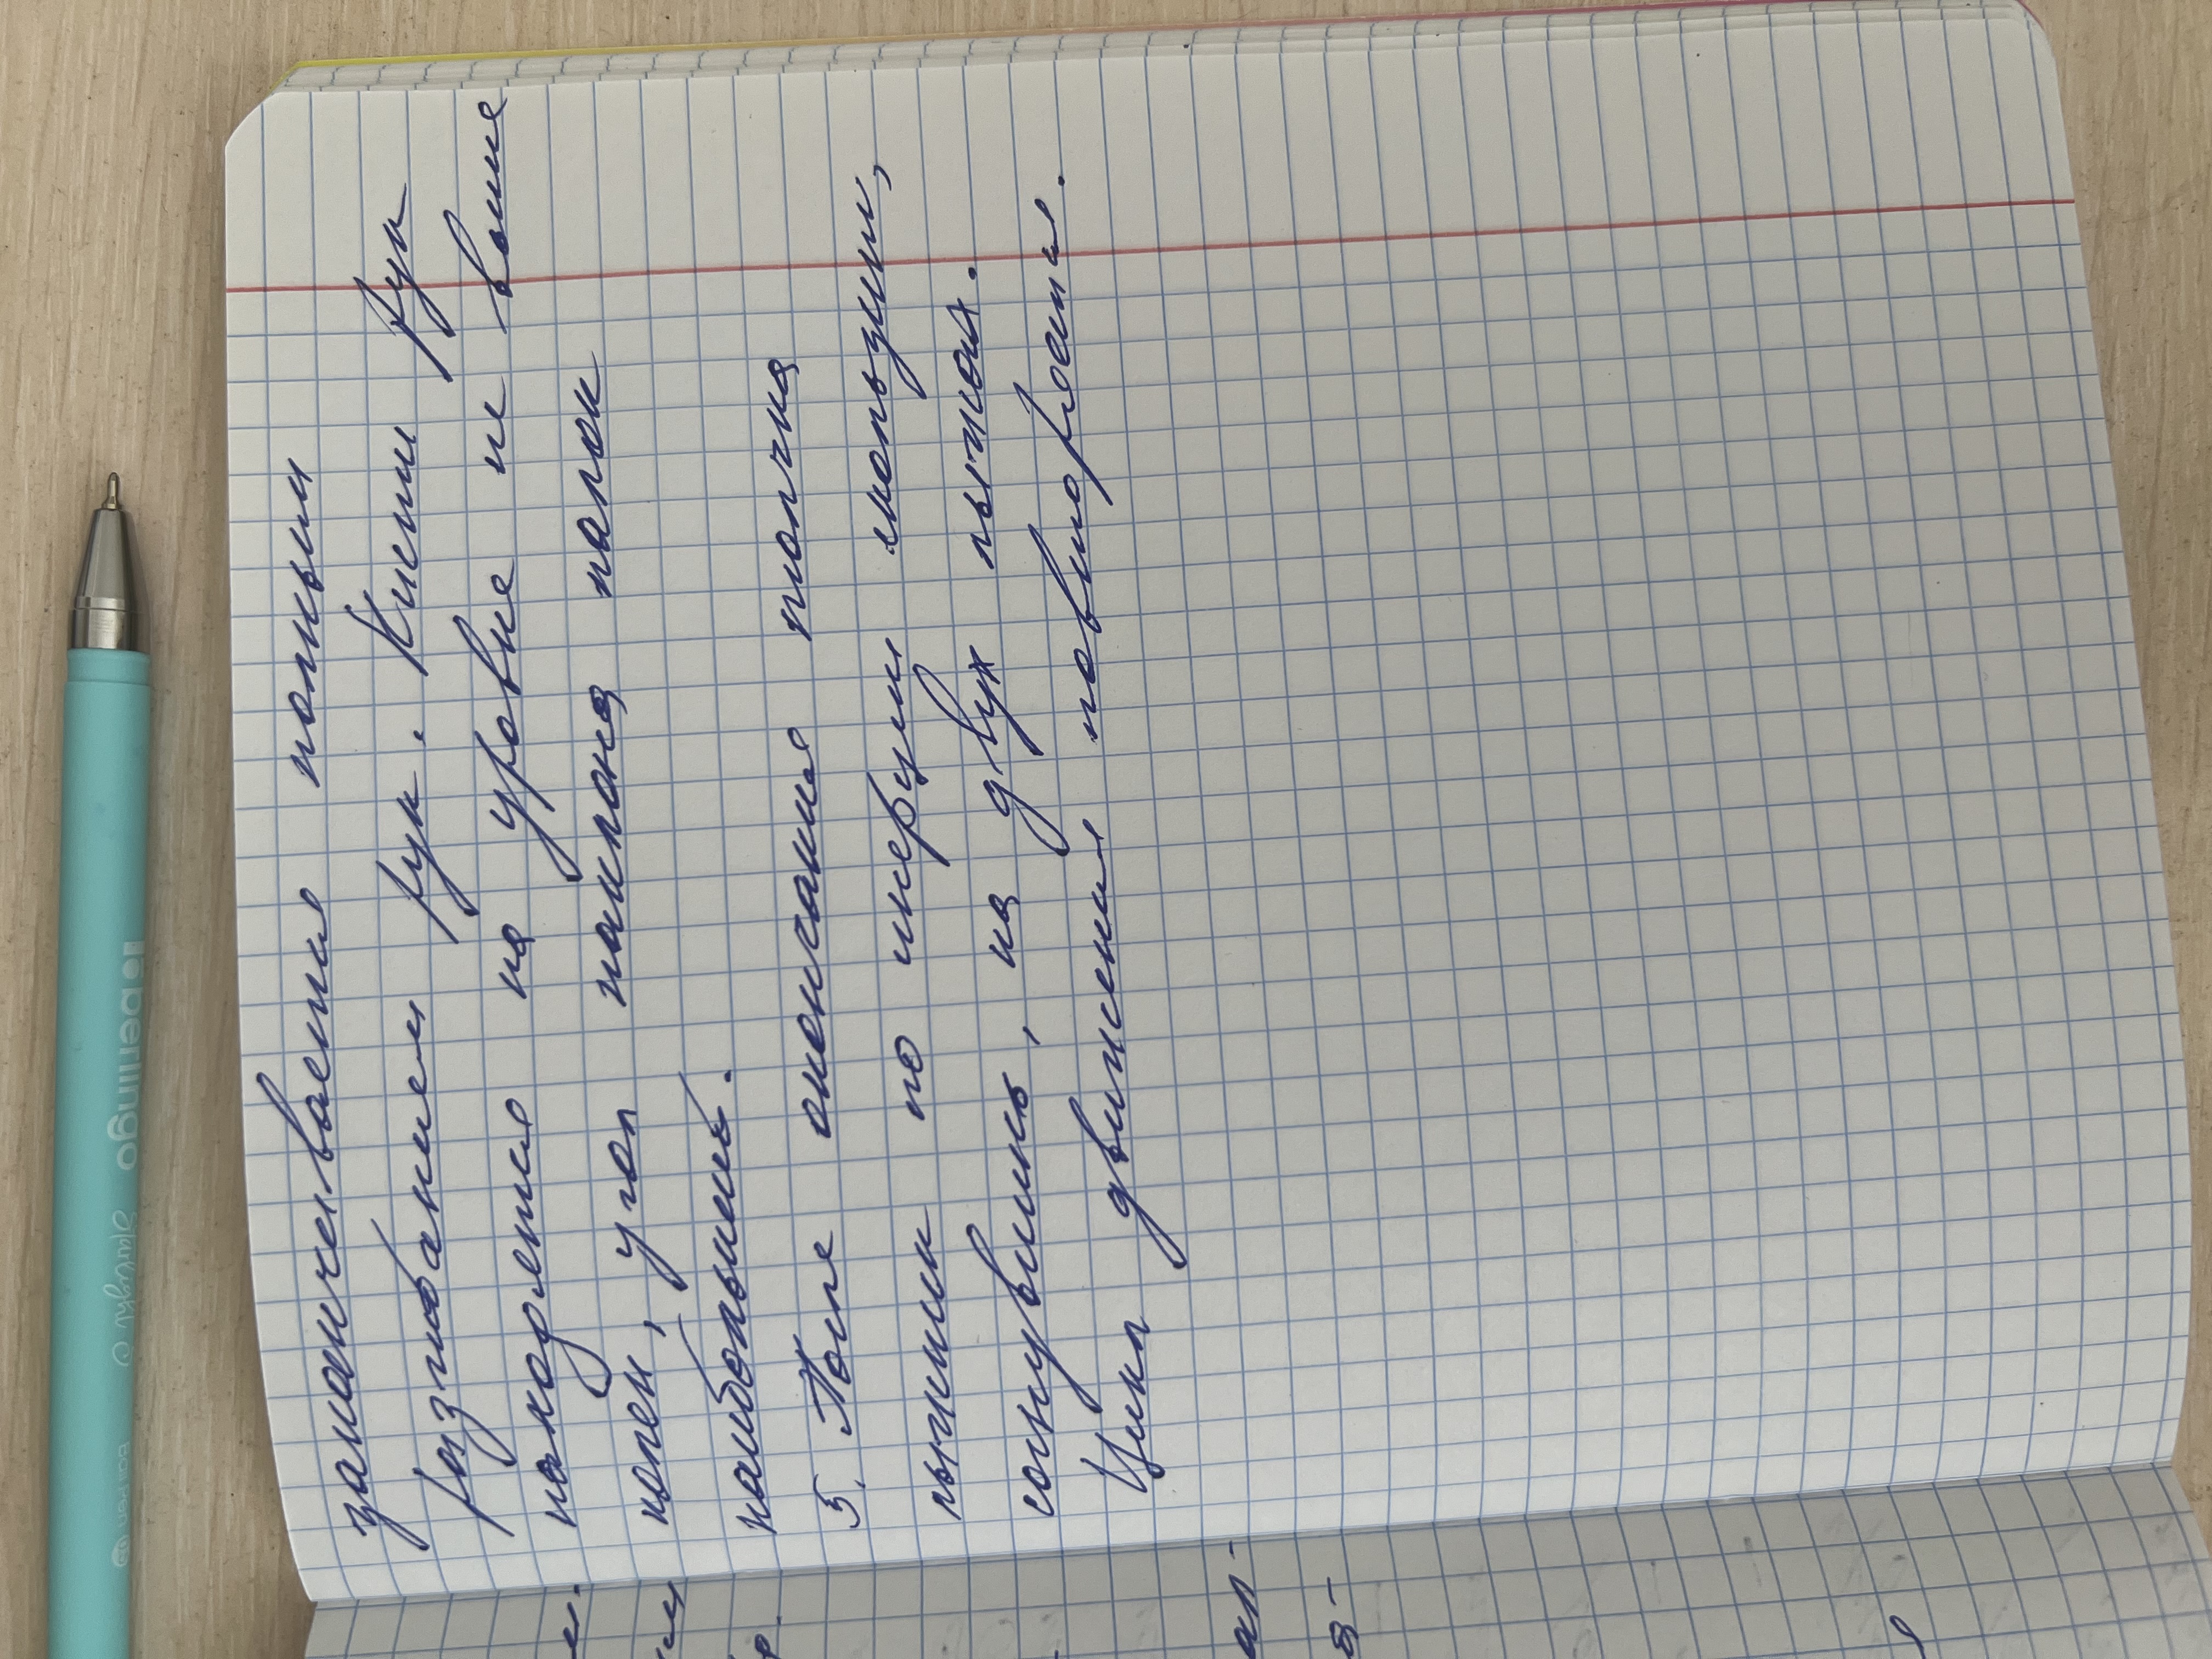 заканчивается полным
разгибанием рук. Кисти рук
находятся на уровне не выше
колен, угол наклона палок
наибольший.
5. После окончания толчка
лыжник по инерции скользит,
согнувшись, на двух лыжах.
Цикл движения повторяется.
berlingo